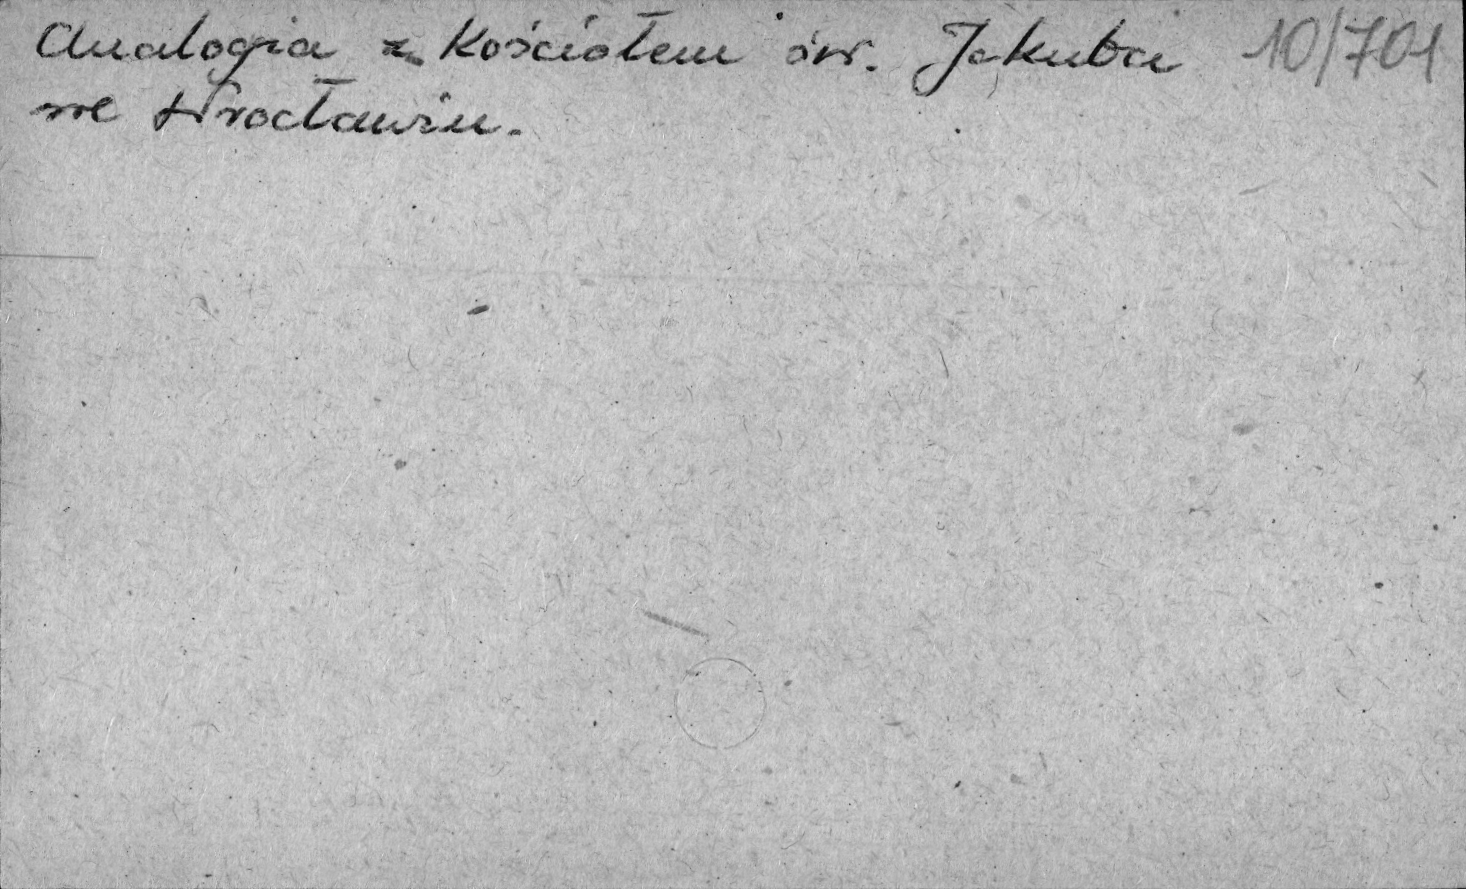 Analogia z kościołem św. Jakuba 10/701
we Wrocławiu.